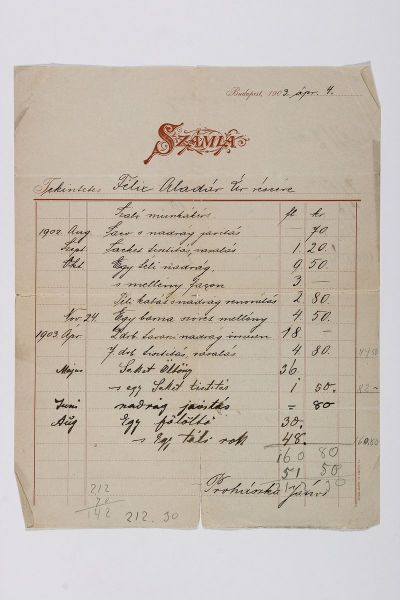 Budapest, 1903 ápr. 4.
SZÁMLA
Tekintetes Félix Aladár Úr részére
Szabó munkáért ft kr.
1902 Aug. Saco s nadrág javitás — 70
Szept. Sackó tisztitás, vasalás 1 20
Okt. Egy téli nadrág 9 50
s mellény façon 3 —
Téli kabát s nadrág renoválás 2 80
Nov. 24. Egy barna szövet mellény 4 50
1903 Ápr. 2 drb tavaszi nadrág 18 —
7 drb tisztitás, vasalás 4 80 44 50
Majus Saket Öltöny 36
s egy Saket tisztitás 1 50. 82 –
Juni nadrág javitás = 80
Aug Egy fölöltő 30.
s Egy téli rok 48.
160 80
51 50
212 30
Prohászka János
212
70
142
212.30